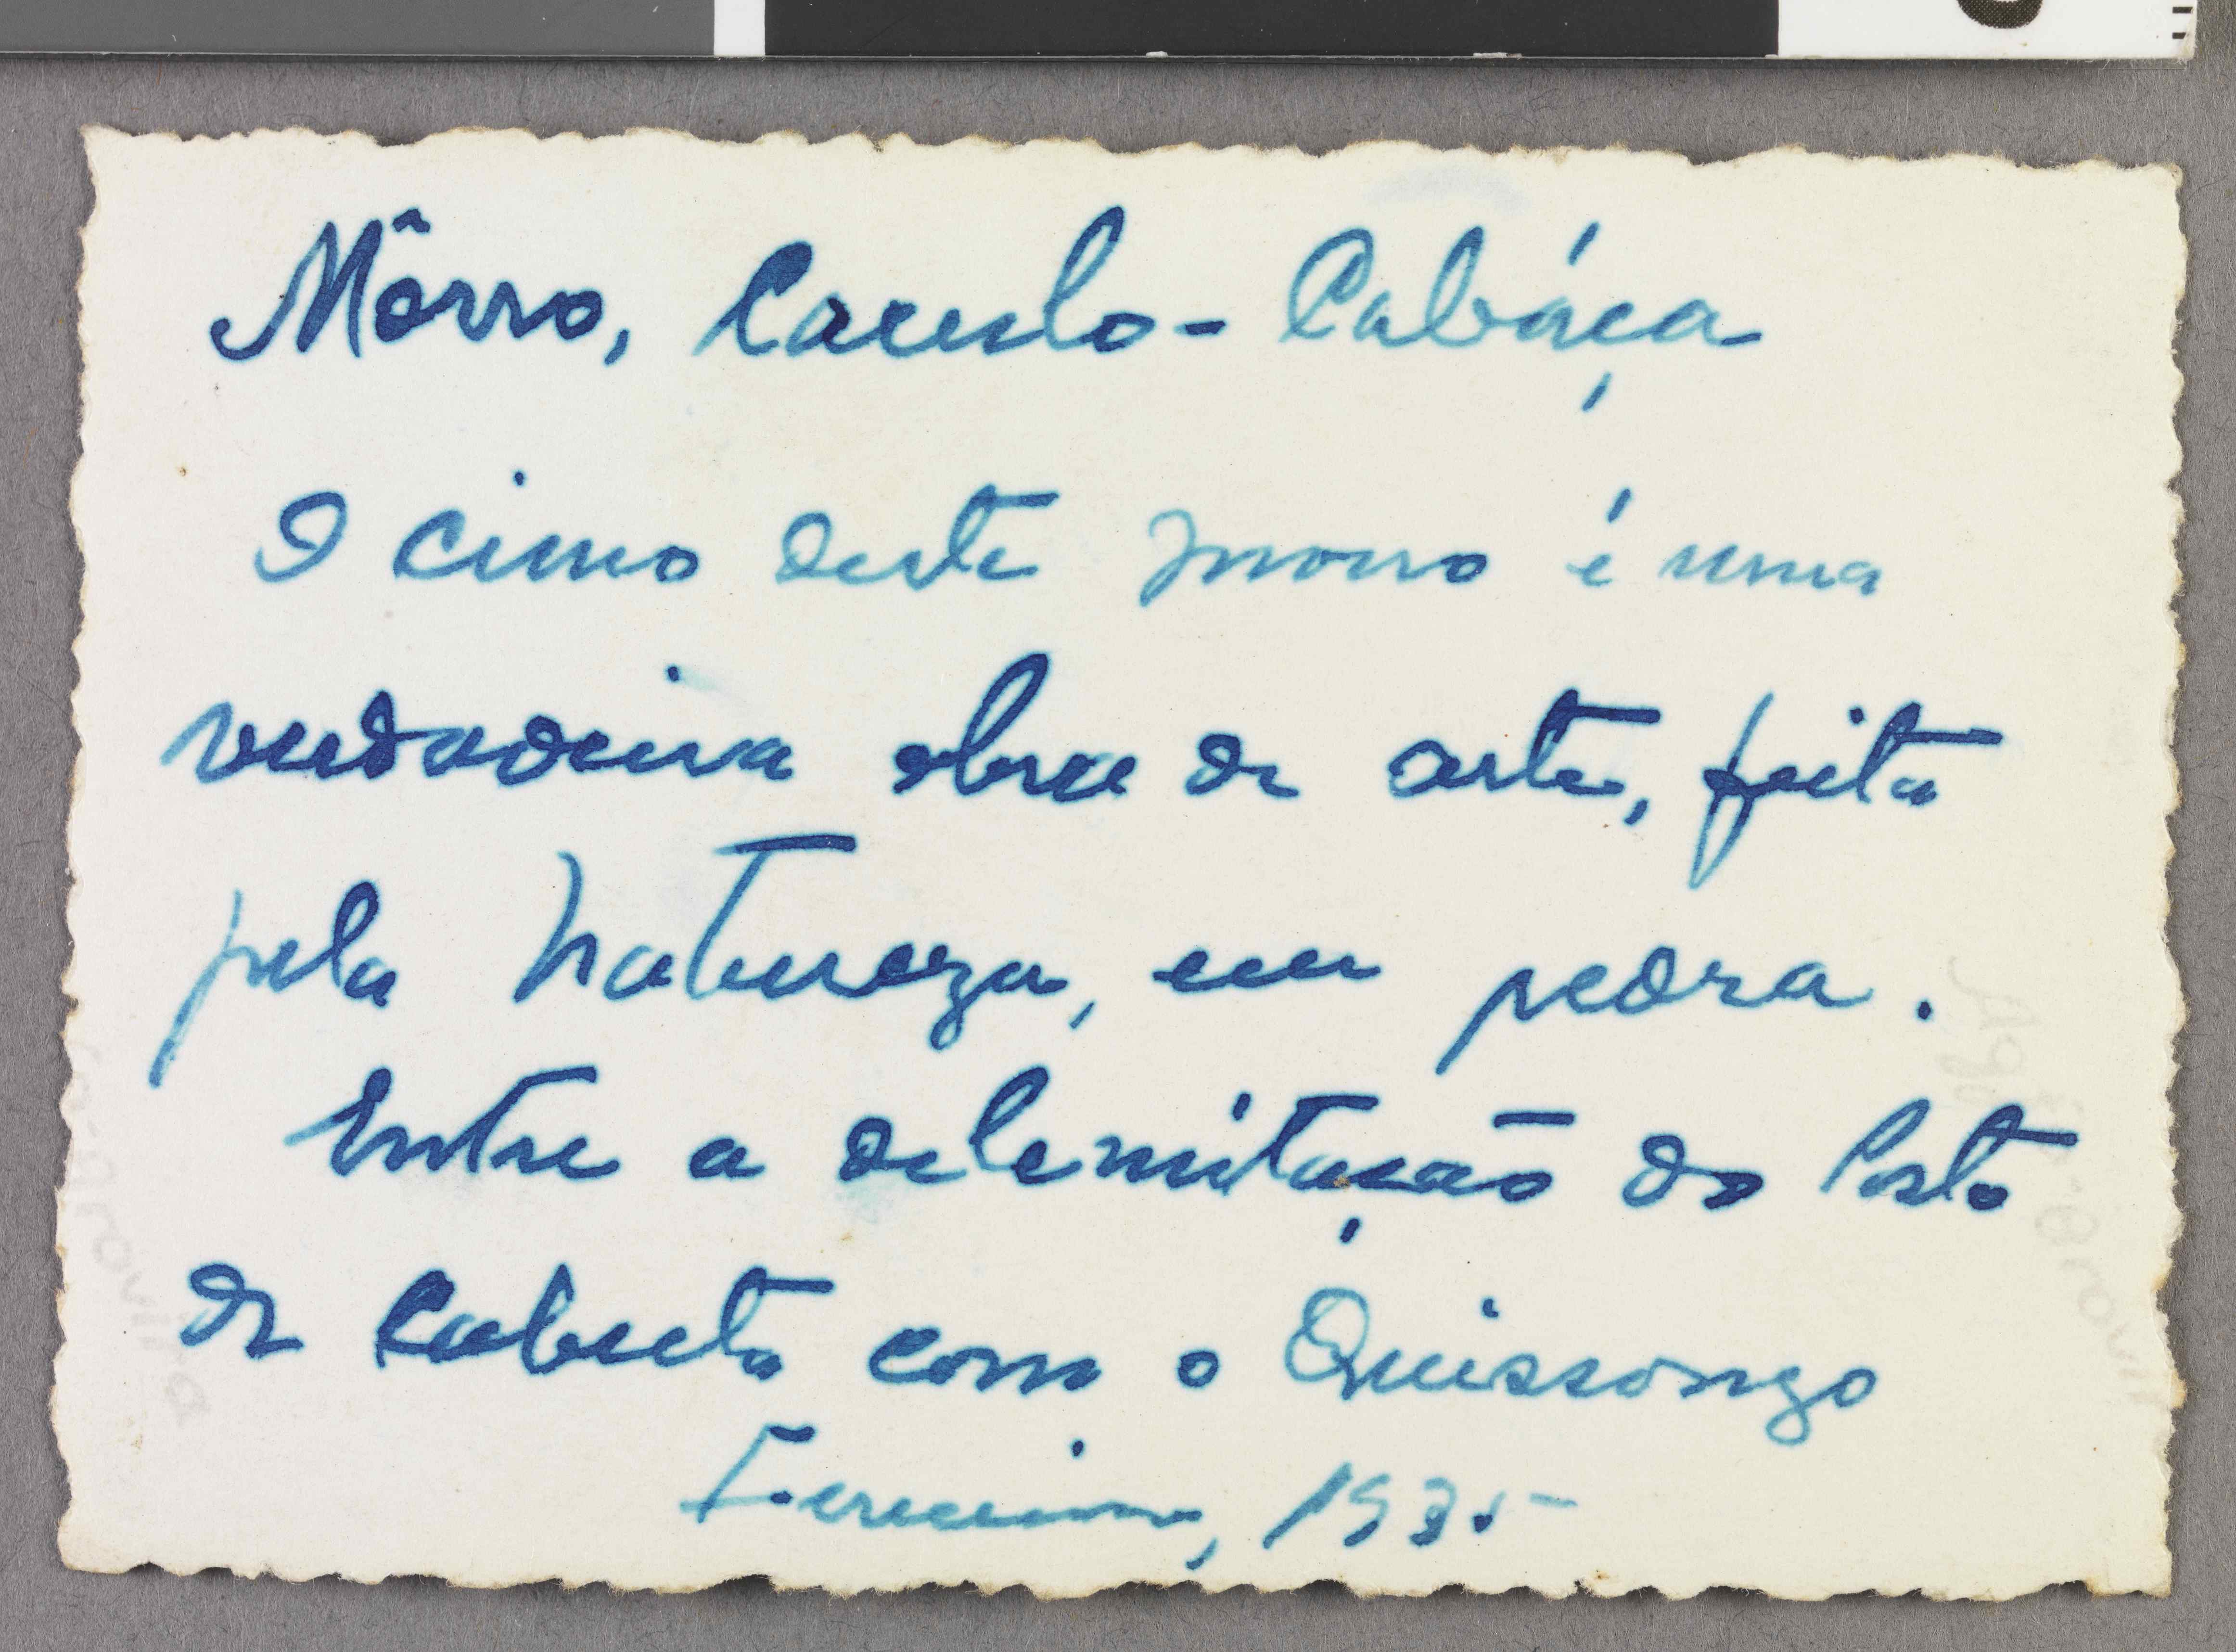 Môrro, Caculo-Cabáça
O cimo deste morro é uma
verdadeira obra de arte, feita
pela Natureza, em pedra.
Entre a delemitação do Posto
de Cabuta com o Quissongo
1935